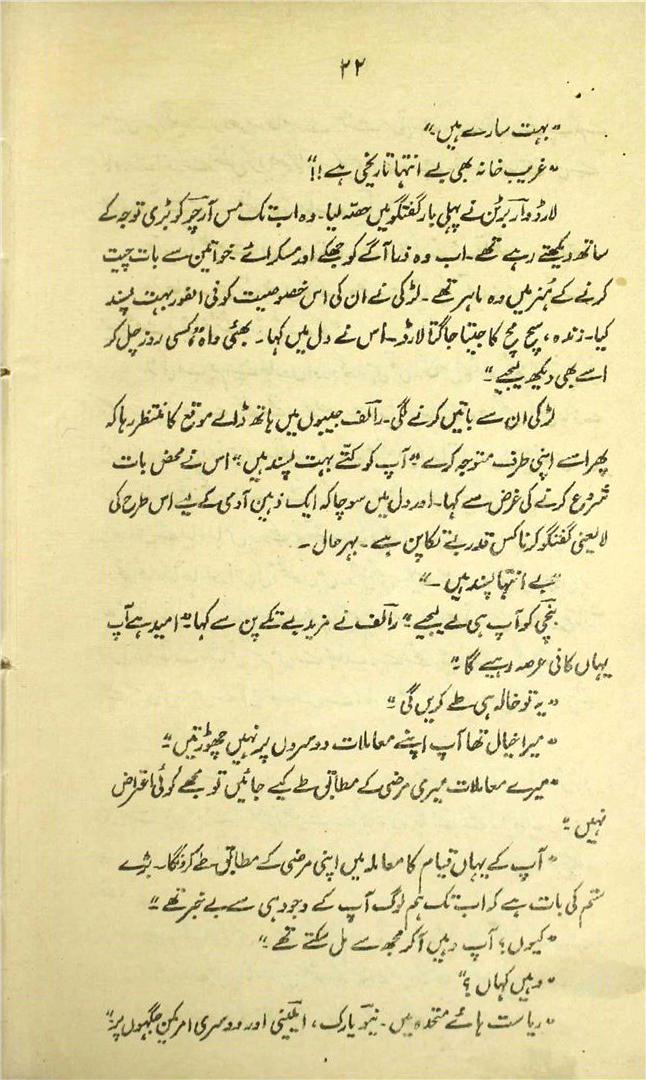 ۲۲
"بہت سارے ہیں"
"غریب خانہ بھی بے انتہا تاریخی ہے!!"
لارڈ وآربرٹن نے پہلی بار گفتگو میں حصّہ لیا۔ وہ اب تک مس آرچر کو بڑی توجہ کے
ساتھ دیکھتے رہے تھے۔ اب وہ ذرا آگے کو جھکے اور مسکرائے۔ خواتین سے بات چیت
کرنے کے ہُنر میں وہ ماہر تھے۔ لڑکی نے ان کی اس خصوصیت کو فی الفور بہت پسند
کیا۔ زندہ، سچ مچ کا جیتا جاگتا لارڈ۔ اس نے دل میں کہا۔ بھئی واہ! "کسی روز چل کر
اسے بھی دیکھ لیجیے"
لڑکی ان سے باتیں کرنے لگی۔ رالف جیبوں میں ہاتھ ڈالے موقع کا منتظر رہا کہ
پھر اسے اپنی طرف متوجہ کرے "آپ کو کتّے بہت پسند ہیں" اس نے محض بات
شروع کرنے کی غرض سے کہا۔ اور دل میں سوچا کہ ایک ذہین آدمی کے لیے اس طرح کی
لایعنی گفتگو کرنا کس قدر بے تکا پن ہے۔ بہر حال۔
"بے انتہا پسند ہیں۔"
"بنچی کو آپ ہی لے لیجیے" رالف نے مزید بے تکے پن سے کہا۔ "امید ہے آپ
یہاں کافی عرصہ رہیے گا"
"یہ تو خالہ ہی طے کریں گی"
"میرا خیال تھا آپ اپنے معاملات دوسروں پر نہیں چھوڑتیں"
"میرے معاملات میری مرضی کے مطابق طے کیے جائیں تو مجھے کوئی اعتراض
نہیں"
"آپ کے یہاں قیام کا معاملہ میں اپنی مرضی کے مطابق طے کرونگا۔ بڑے
ستم کی بات ہے کہ اب تک ہم لوگ آپ کے وجود ہی سے بے خبر تھے"
"کیوں؟ آپ وہیں آکر مجھ سے مل سکتے تھے"
"وہیں کہاں؟"
"ریاست ہائے متحدہ میں۔ نیو یارک، ایلبنی اور دوسری امریکن جگہوں پر"